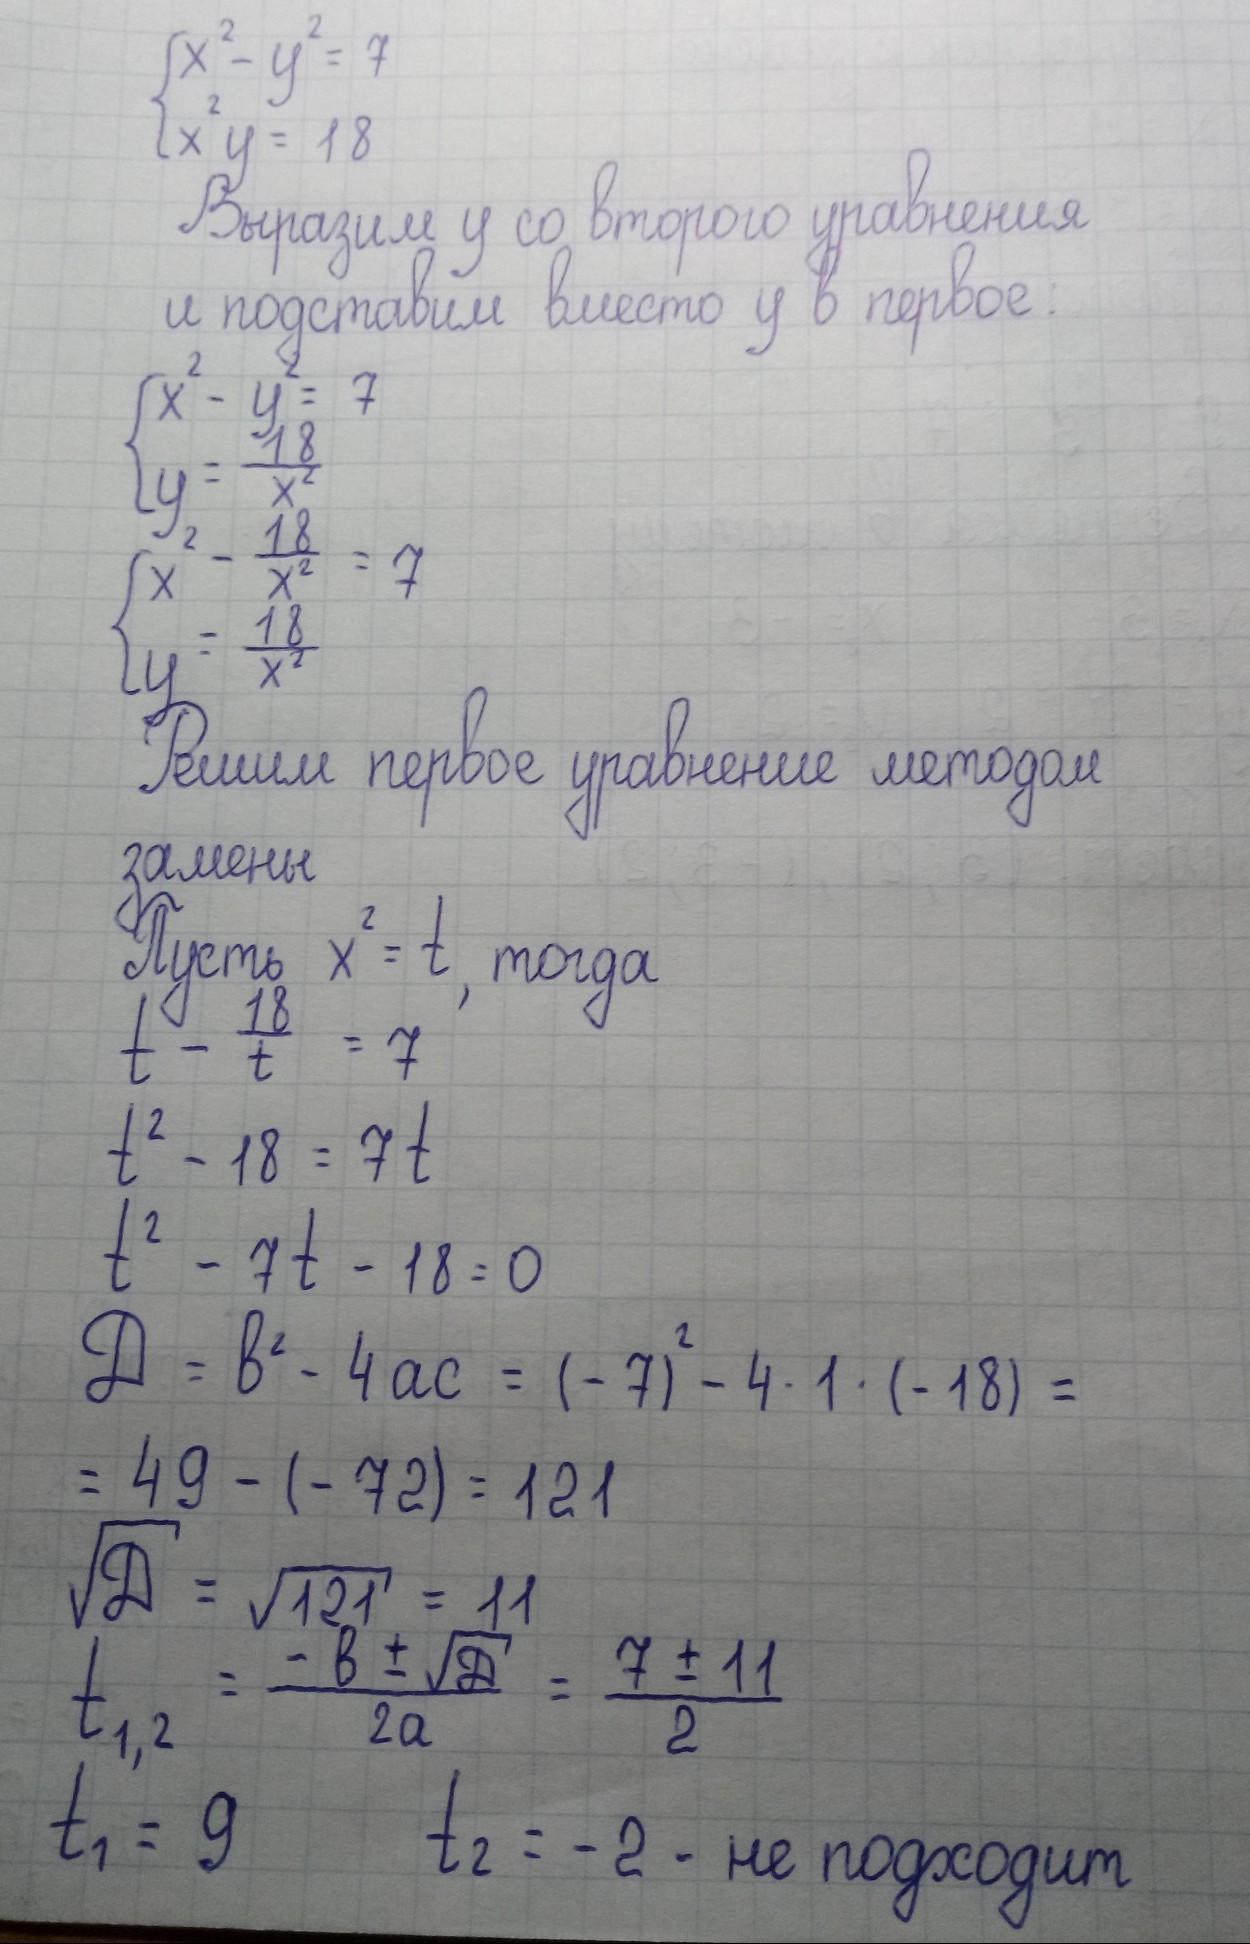 {x² - y² = 7
{x²y = 18
Выразим y со второго уравнения
и подставим вместо y в первое:
{x² - y² = 7
{y = 18/x²
{x² - 18/x² = 7
{y = 18/x²
Решим первое уравнение методом
замены
Пусть x² = t, тогда
t - 18/t = 7
t² - 18 = 7t
t² - 7t - 18 = 0
Д = в² - 4ac = (-7)² - 4·1·(-18) =
= 49 - (-72) = 121
√Д = √121 = 11
t1,2 = (-в ± √Д)/2a = (7 ± 11)/2
t1 = 9 t2 = -2 - не подходит